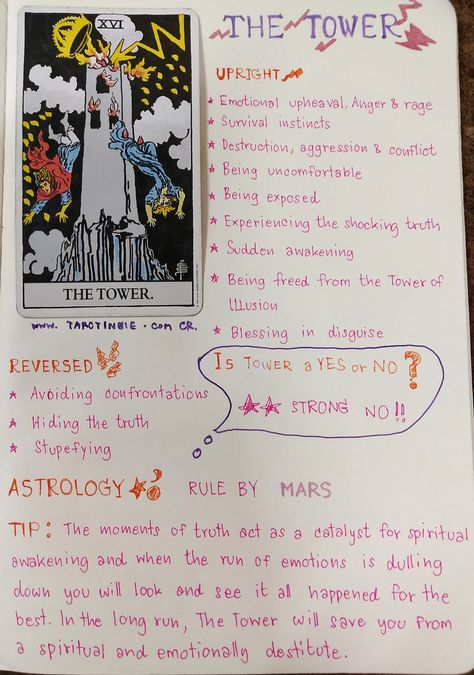 XVI
THE TOWER.
www. TAROTINGIE - COM CR.
THE TOWER
UPRIGHT
★ Emotional upheaval, Anger & rage
★ Survival instincts
★ Destruction, aggression & conflict
★ Being uncomfortable
★ Being exposed
★ Experiencing the shocking truth
★ Sudden awakening
★ Being freed from the Tower of
Illusion
★ Blessing in disguise
REVERSED
★ Avoiding confrontations
★ Hiding the truth
★ Stupefying
Is TOWER a YES or NO ?
★★ STRONG NO!!
ASTROLOGY RULE BY MARS
TIP: The moments of truth act as a catalyst for spiritual
awakening and when the run of emotions is dulling
down you will look and see it all happened for the
best. In the long run, The Tower will save you from
a spiritual and emotionally destitute.